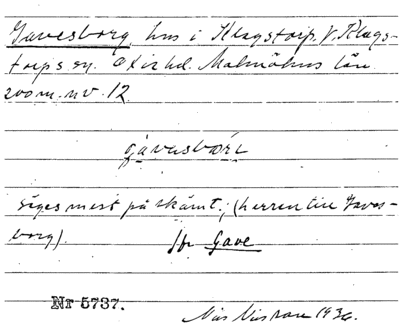 Gavesborg, hus i Klagstorp, V. Klags-
torps sn. Oxie hd. Malmöhus län.
200 m. nv. 12.
gávasbárr
säges mest på skämt; (herren till Gaves-
borg). Jfr Gave
Nr 5737.
Nils Nilsson 1936.